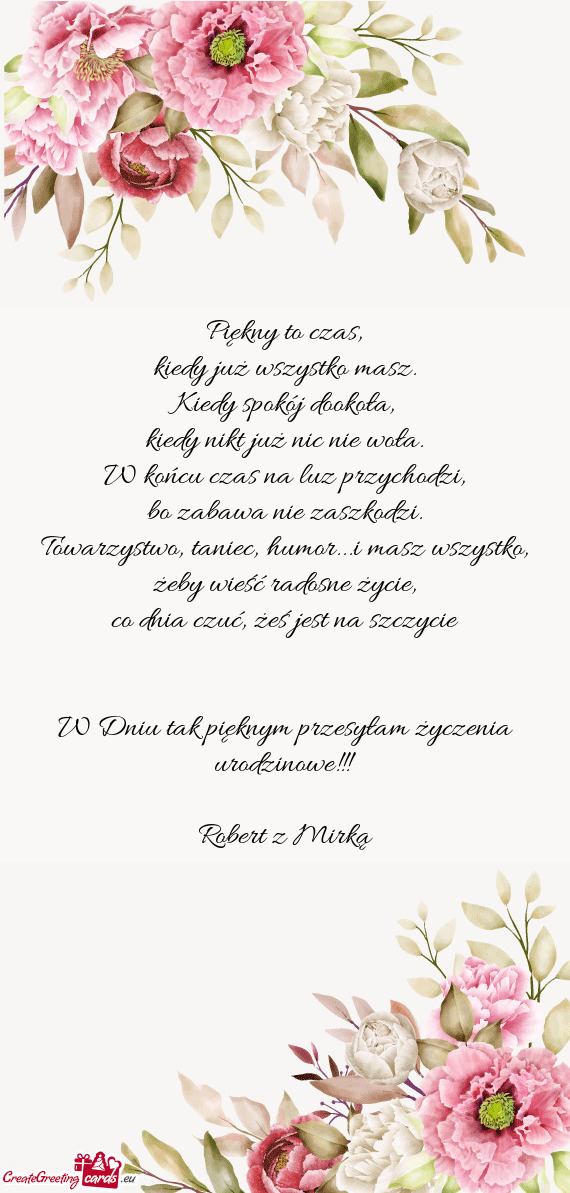 Piękny to czas,
kiedy już wszystko masz.
Kiedy spokój dookoła,
kiedy nikt już nic nie woła.
W końcu czas na luz przychodzi,
bo zabawa nie zaszkodzi.
Towarzystwo, taniec, humor...i masz wszystko,
żeby wieść radosne życie,
co dnia czuć, żeś jest na szczycie
W Dniu tak pięknym przesyłam życzenia
urodzinowe!!!
Robert z Mirką
CreateGreeting cards .eu